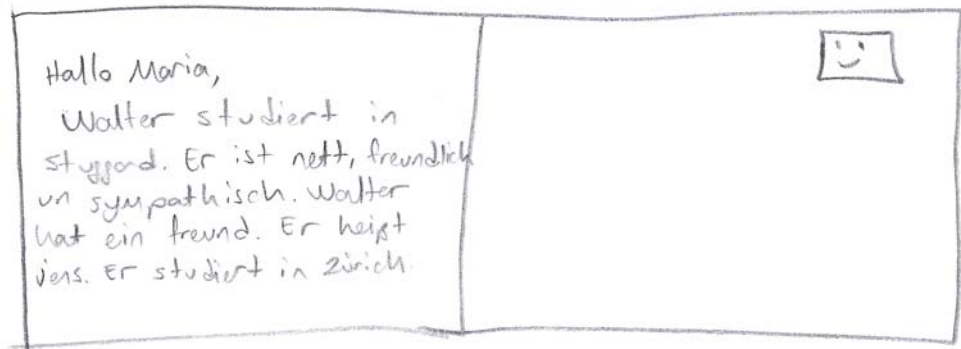 Hallo Maria,
Walter studiert in
stuggard. Er ist nett, freundlich
un sympathisch. Walter
hat ein freund. Er heißt
jens. Er studiert in Zürich.